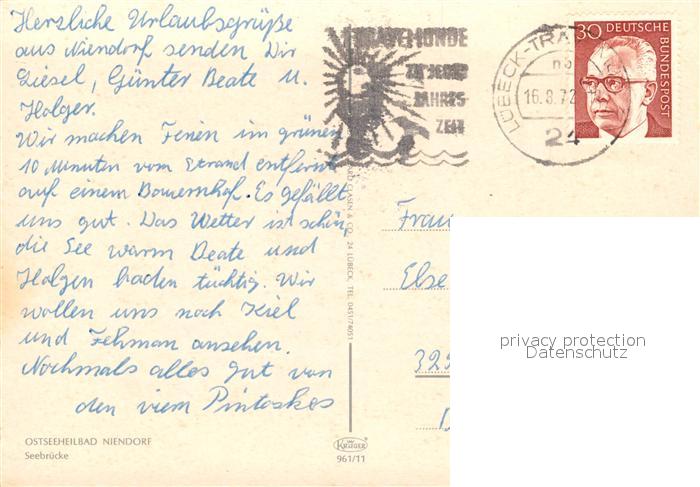 Herzliche Urlaubsgrüße
aus Niendorf senden Dir
Liesel, Günter Beate u.
Holger.
Wir machen Ferien im grünen
10 Minuten vom Strand entfernt
auf einem Bauernhof. Es gefällt
uns gut. Das Wetter ist schön,
die See warm Beate und
Holger baden tüchtig. Wir
wollen uns noch Kiel
und Fehmarn ansehen.
Nochmals alles gut von
den vier Pintoskes
OSTSEEHEILBAD NIENDORF
Seebrücke
TRAVEMÜNDE
ZU JEDER
JAHRES
ZEIT
LÜBECK-TRA
16.8.72
24
30 DEUTSCHE
BUNDESPOST
CLASEN & CO. 24 LÜBECK, TEL. 0451/74051
Frau
Else
325
KRÜGER
961/11
privacy protection
Datenschutz